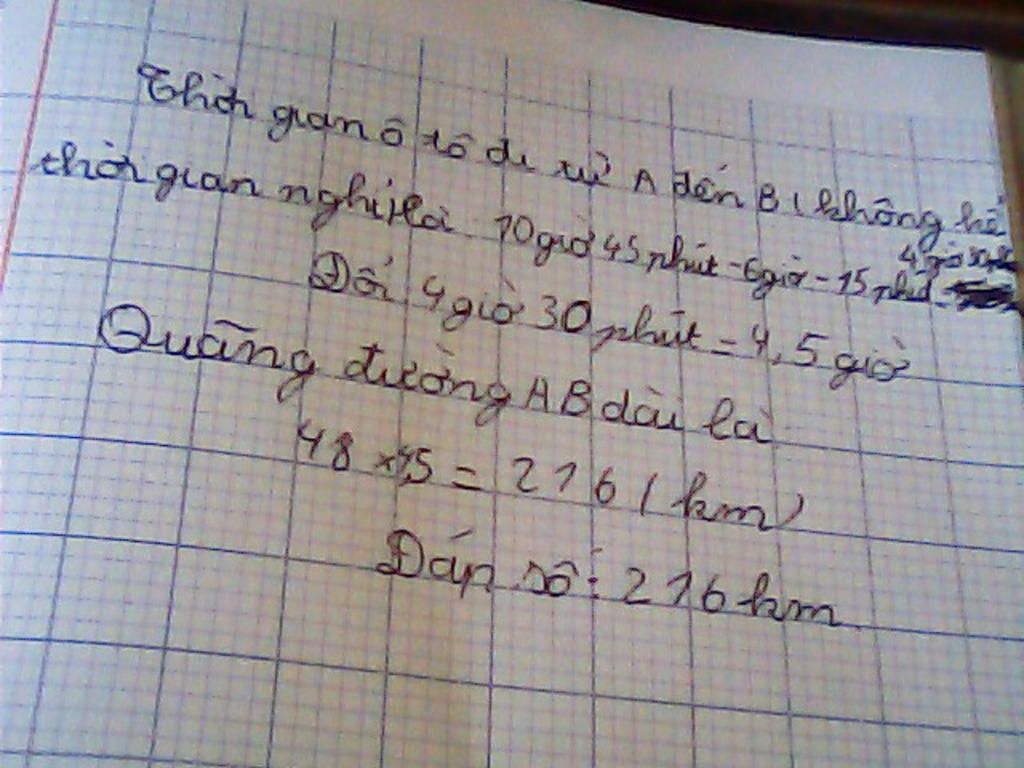 Thời gian ô tô đi từ A đến B (không kể
thời gian nghỉ) là
10 giờ 45 phút - 6 giờ - 15 phút = 4 giờ 30 phút
Đổi 4 giờ 30 phút = 4,5 giờ
Quãng đường AB dài là
48 x 4,5 = 216 (km)
Đáp số: 216 km